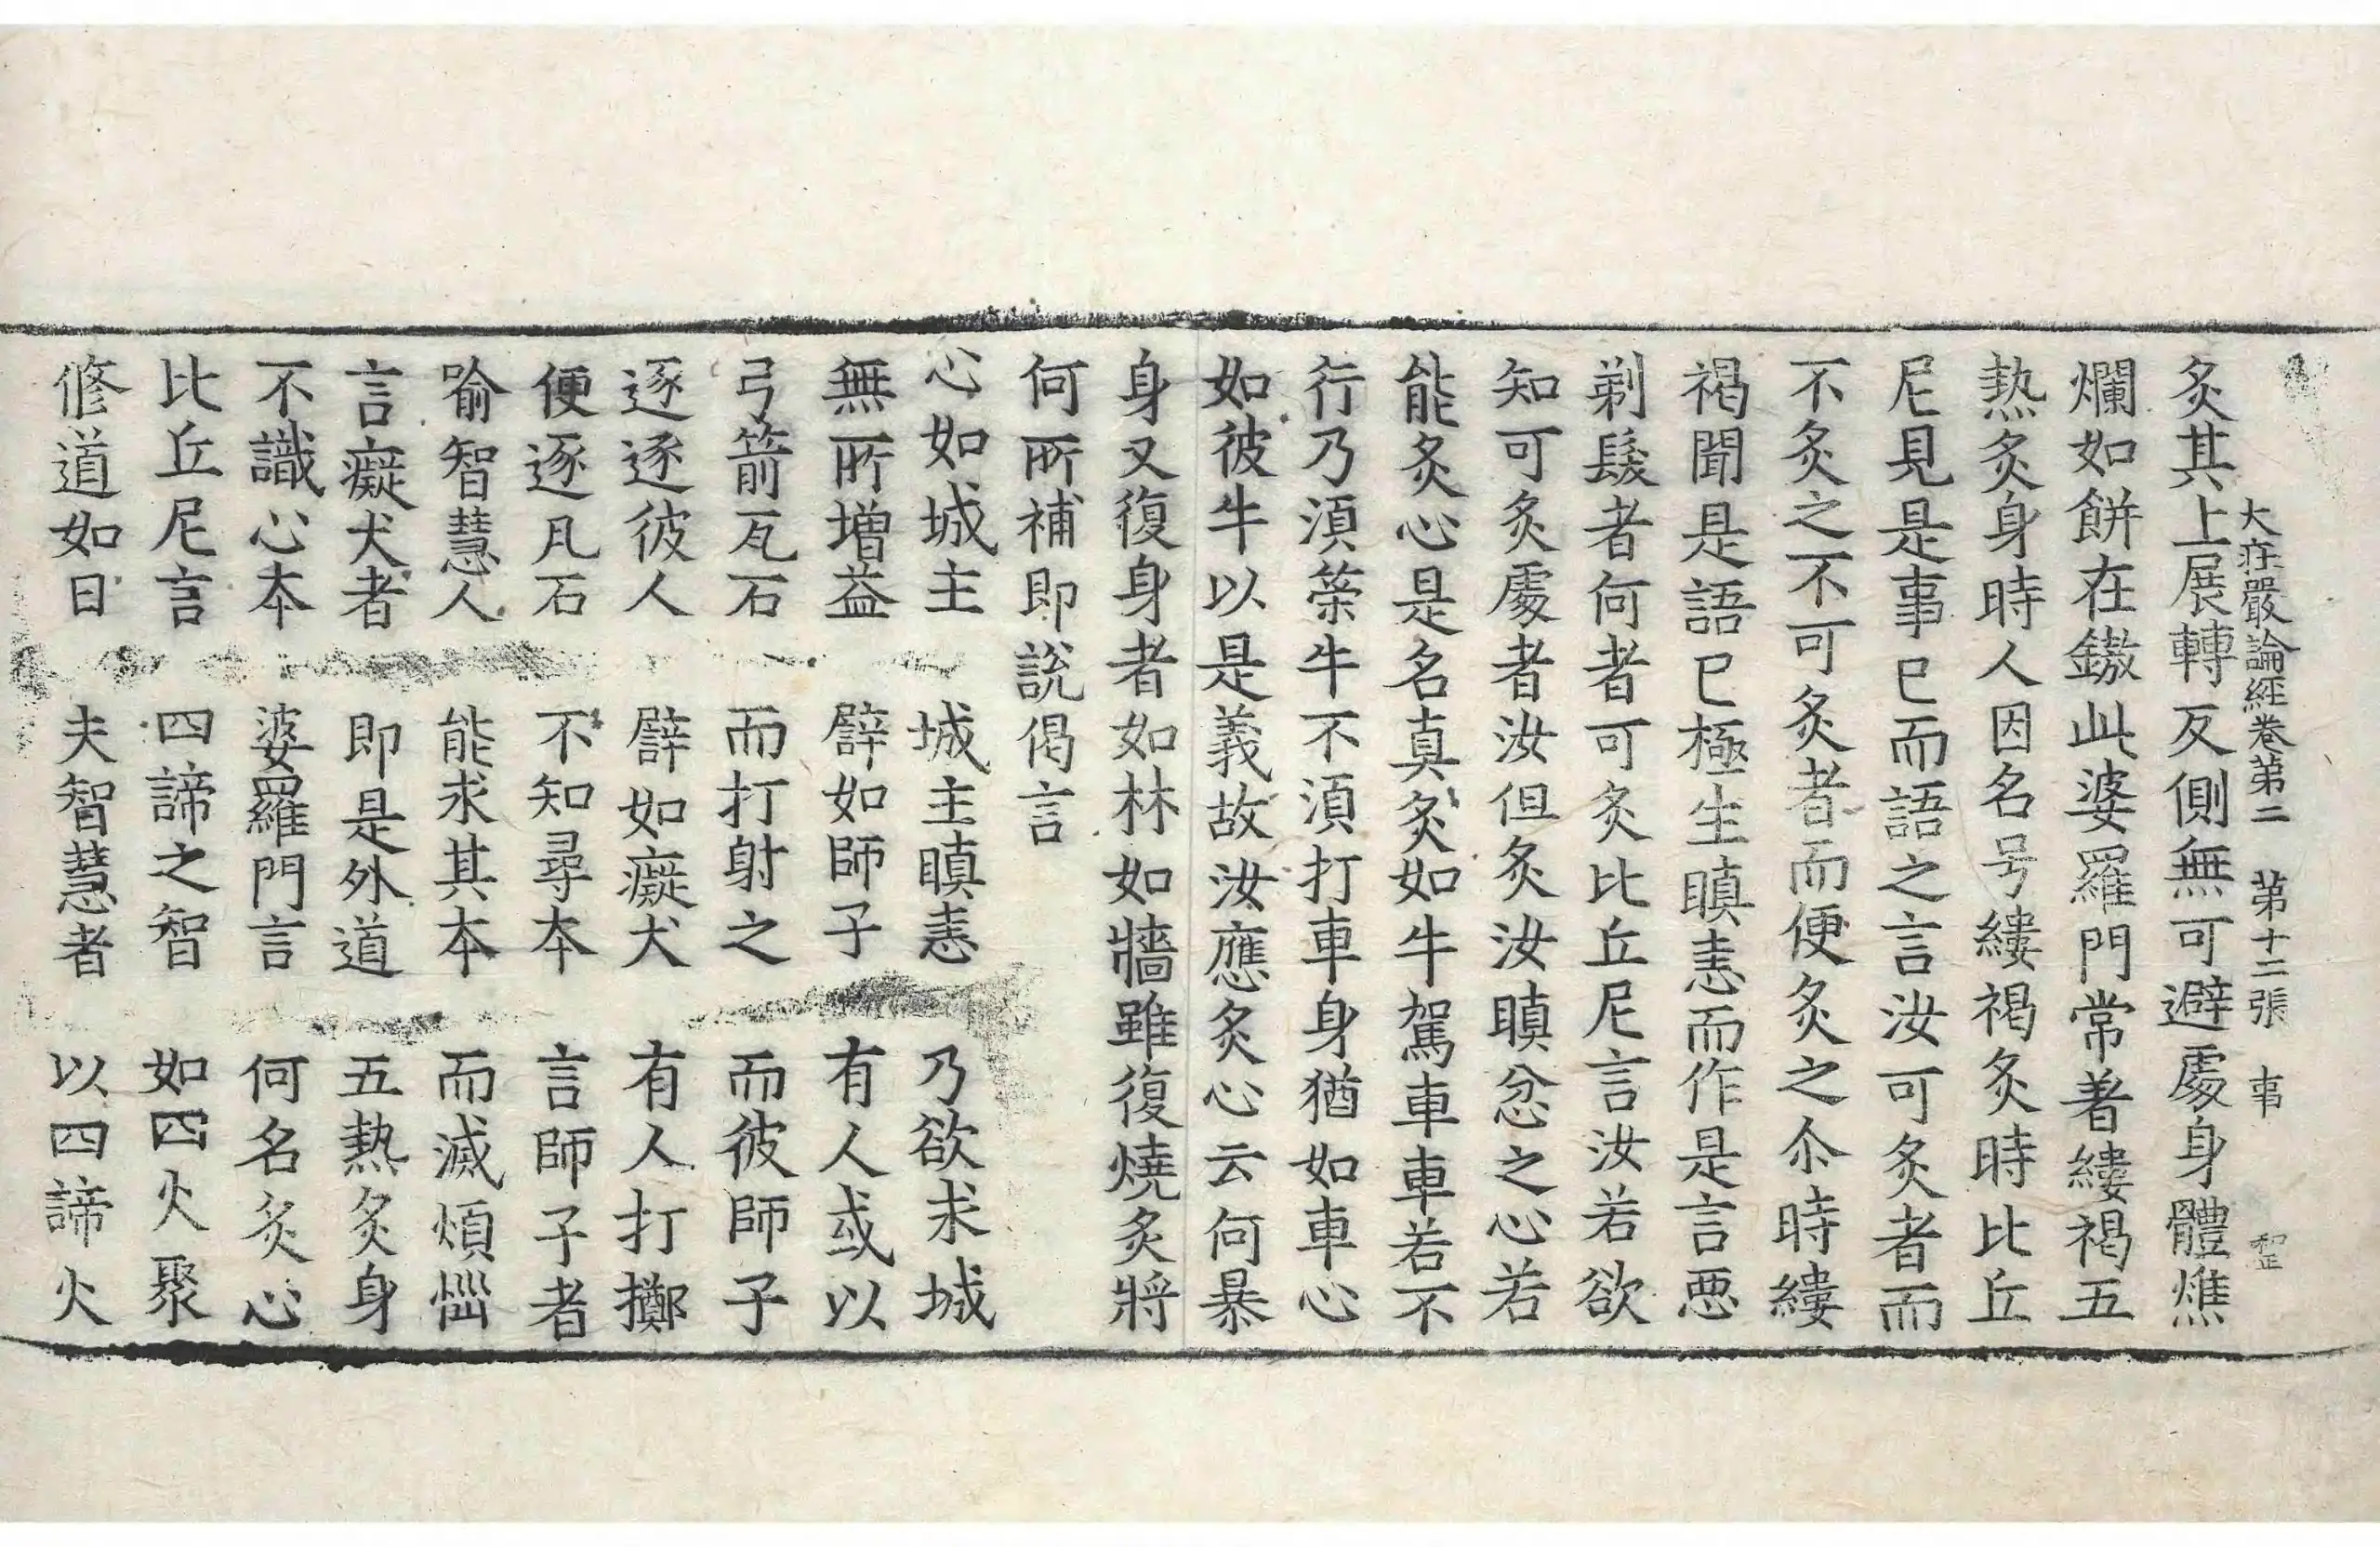 大莊嚴論經卷第二 第十二張 事
炙其上展轉反側無可避處身體燋
爛如餅在鏊此婆羅門常著縷褐五
熱炙身時人因名号縷褐炙時比丘
尼見是事已而語之言汝可炙者而
不炙之不可炙者而便炙之尒時縷
褐聞是語已極生瞋恚而作是言惡
剃髮者何者可炙比丘尼言汝若欲
知可炙處者汝但炙汝瞋忿之心若
能炙心是名真炙如牛駕車車若不
行乃須䇿牛不須打車身猶如車心
如彼牛以是義故汝應炙心云何暴
身又復身者如林如牆雖復燒炙將
何所補即說偈言
心如城主 城主瞋恚 乃欲求城
無所增益 譬如師子 有人或以
弓箭瓦石 而打射之 而彼師子
逐逐彼人 譬如癡犬 有人打擲
便逐瓦石 不知尋本 言師子者
喻智慧人 能求其本 而滅煩惱
言癡犬者 即是外道 五熱炙身
不識心本 婆羅門言 何名炙心
比丘尼言 四諦之智 如四火聚
修道如日 夫智慧者 以四諦火